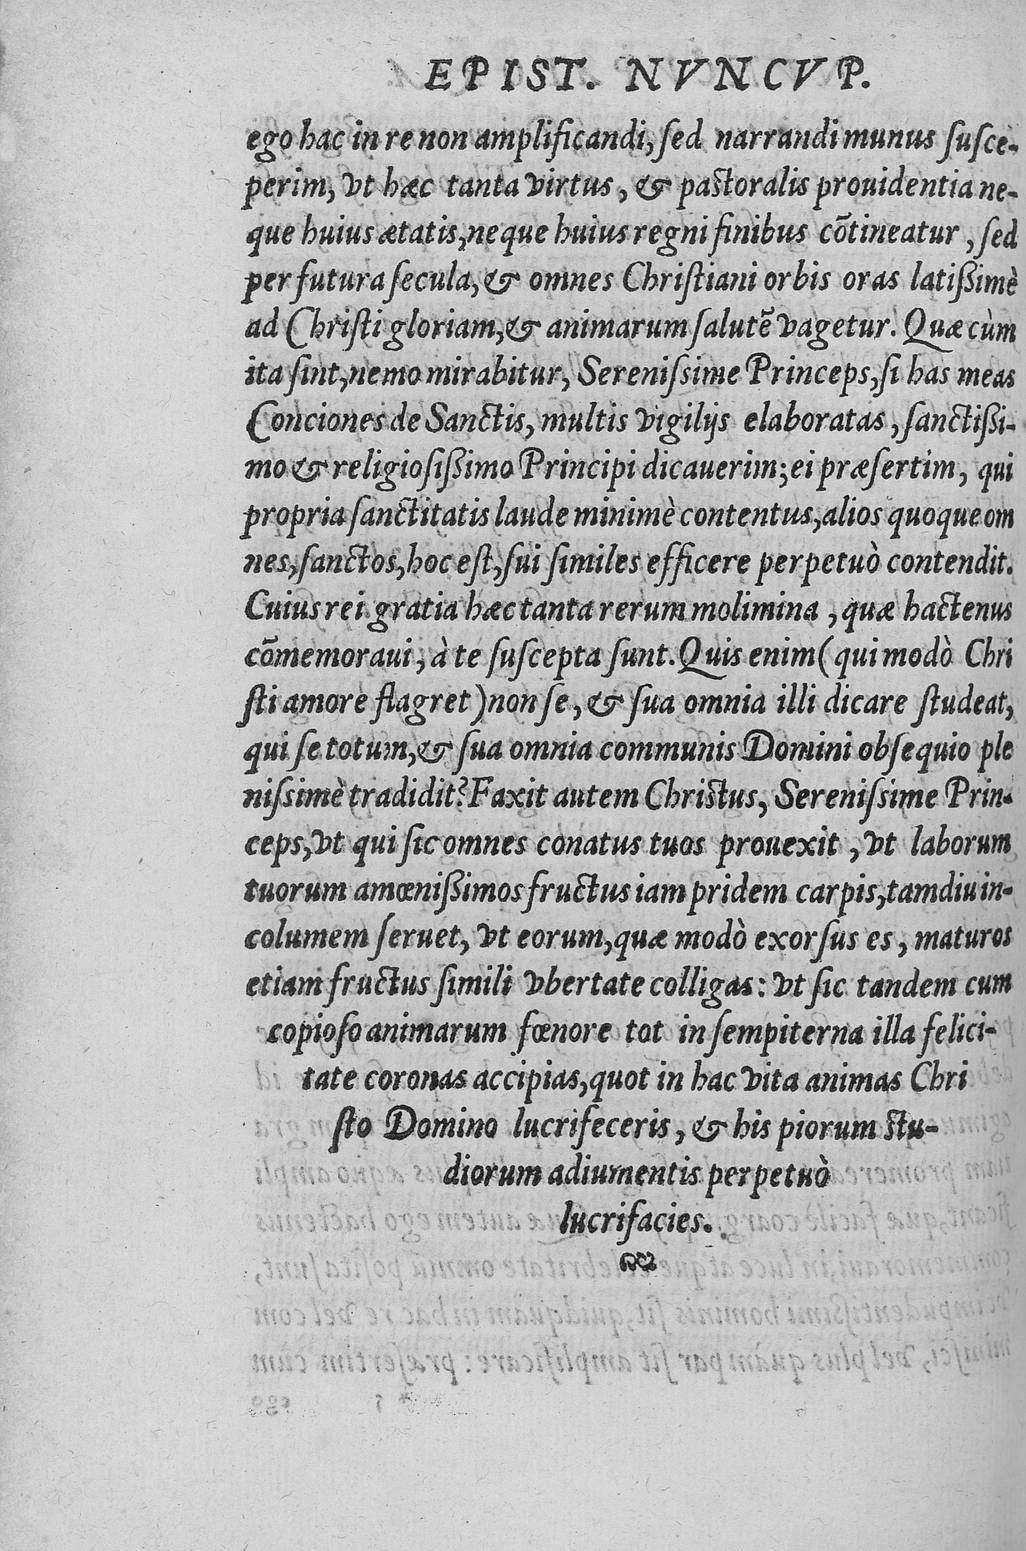 EPIST. NVNCVP.
ego hac in re non amplificandi, ſed narrandi munus ſuſce-
perim, vt hæc tanta virtus, & paſtoralis prouidentia ne-
que huius ætatis, neque huius regni finibus cõtineatur, ſed
per futura ſecula, & omnes Chriſtiani orbis oras latißimè
ad Chriſti gloriam, & animarum ſalutẽ vagetur. Quæ cùm
ita ſint, nemo mirabitur, Sereniſsime Princeps, ſi has meas
Conciones de Sanctis, multis vigilijs elaboratas, ſanctißi-
mo & religioſißimo Principi dicauerim; ei præſertim, qui
propria ſanctitatis laude minimè contentus, alios quoque om
nes, ſanctos, hoc eſt, ſui ſimiles efficere perpetuò contendit.
Cuius rei gratia hæc tanta rerum molimina, quæ hactenus
cõmemoraui, à te ſuſcepta ſunt. Quis enim (qui modò Chri
ſti amore flagret) non ſe, & ſua omnia illi dicare ſtudeat,
qui ſe totum, & ſua omnia communis Domini obſequio ple
niſsimè tradidit? Faxit autem Chriſtus, Sereniſsime Prin-
ceps, vt qui ſic omnes conatus tuos prouexit, vt laborum
tuorum amœnißimos fructus iam pridem carpis, tamdiu in-
columem ſeruet, vt eorum, quæ modò exorſus es, maturos
etiam fructus ſimili vbertate colligas: vt ſic tandem cum
copioſo animarum fœnore tot in ſempiterna illa felici-
tate coronas accipias, quot in hac vita animas Chri
ſto Domino lucrifeceris, & his piorum ſtu-
diorum adiumentis perpetuò
lucrifacies.